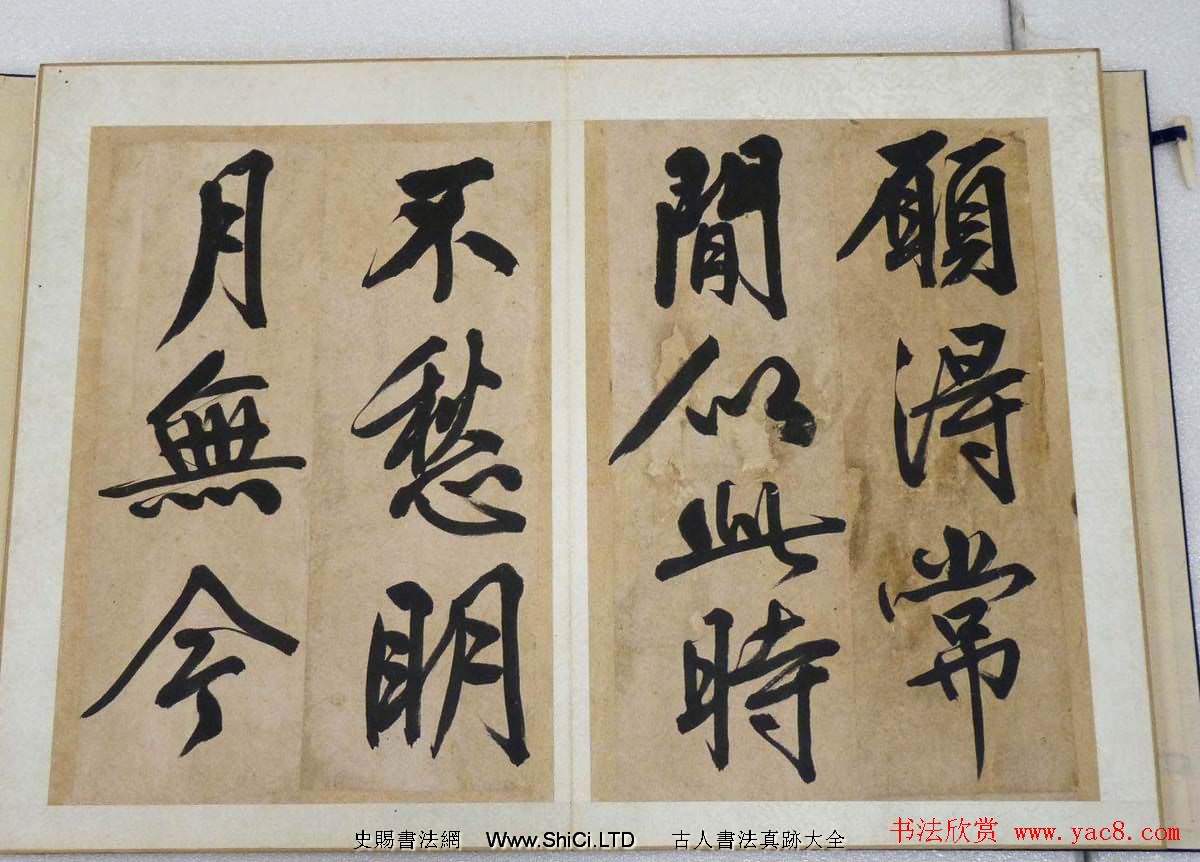 願得常
閒似此時
不愁明
月無今
史賜書法網 Www.ShiCi.LTD 古人書法真跡大全
书法欣赏 www.yac8.com